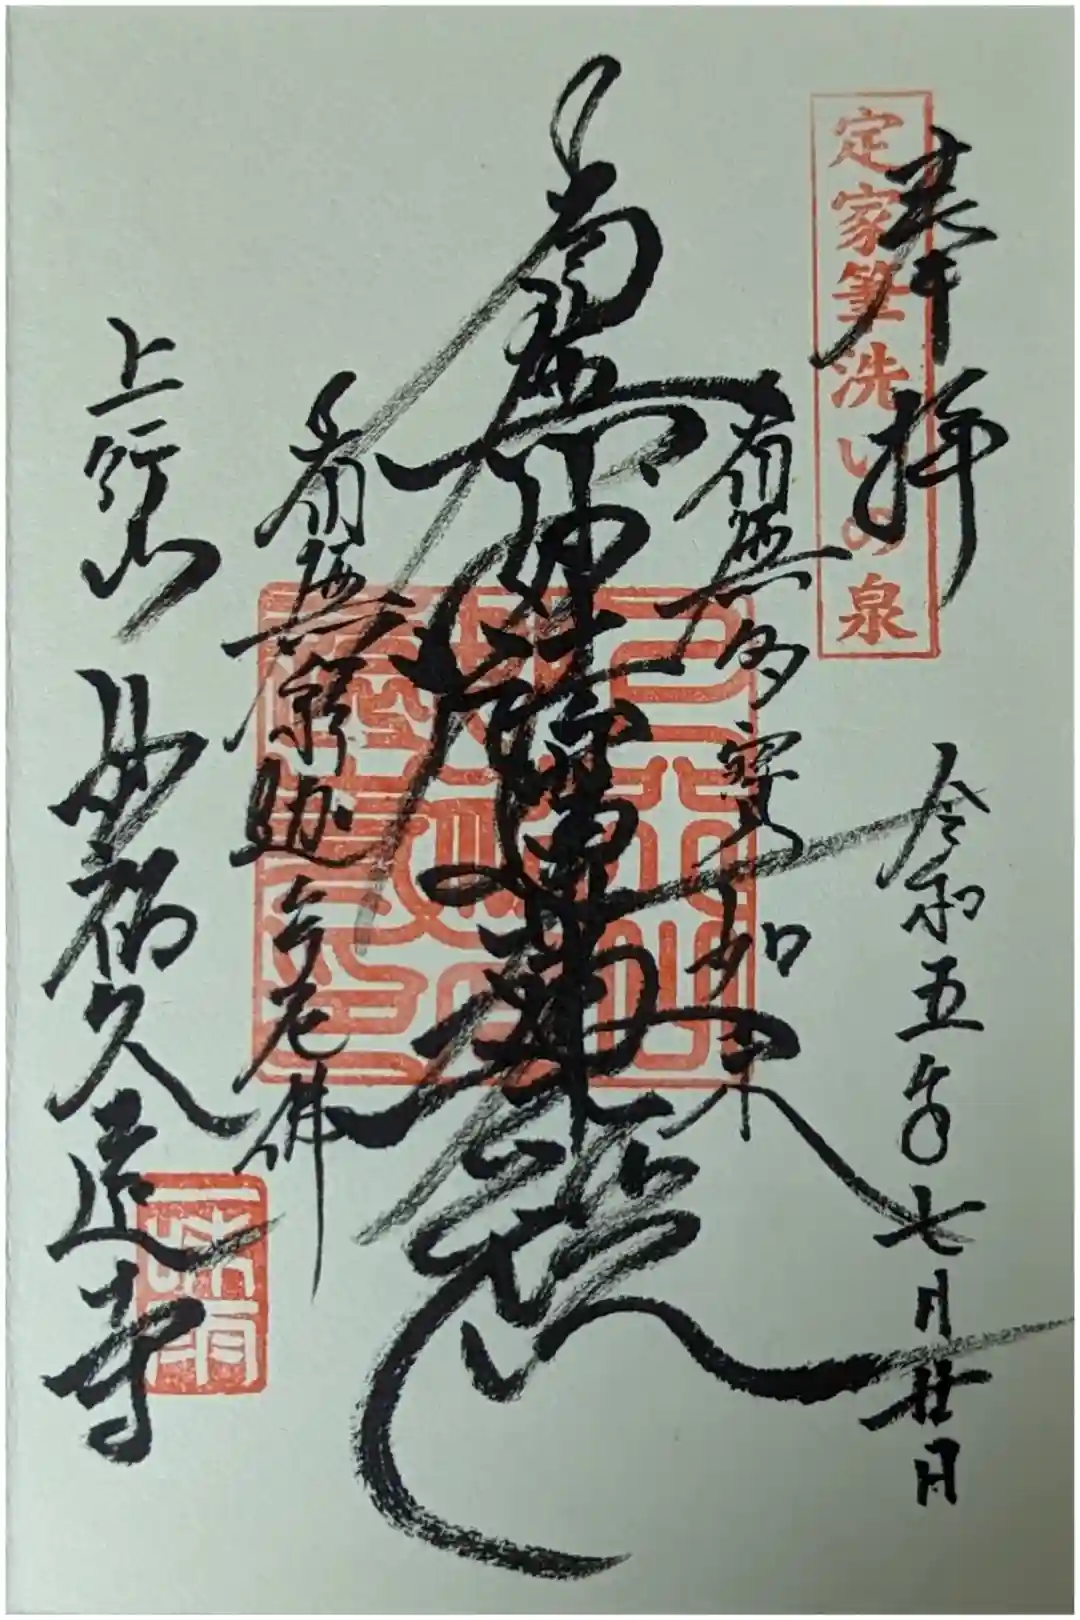 奉拝
定家筆洗いの泉
令和五年七月廿日
南無多寳如来
南無妙法蓮華経
南無釋迦牟尼佛
上行山
妙祐久遠寺
一味雨